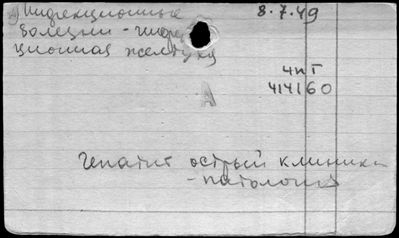 Инфекционные 8.7.49
болезни - инфек
ционная желтуха
4пГ
414160
А
Гепатит острый клиника
-патология